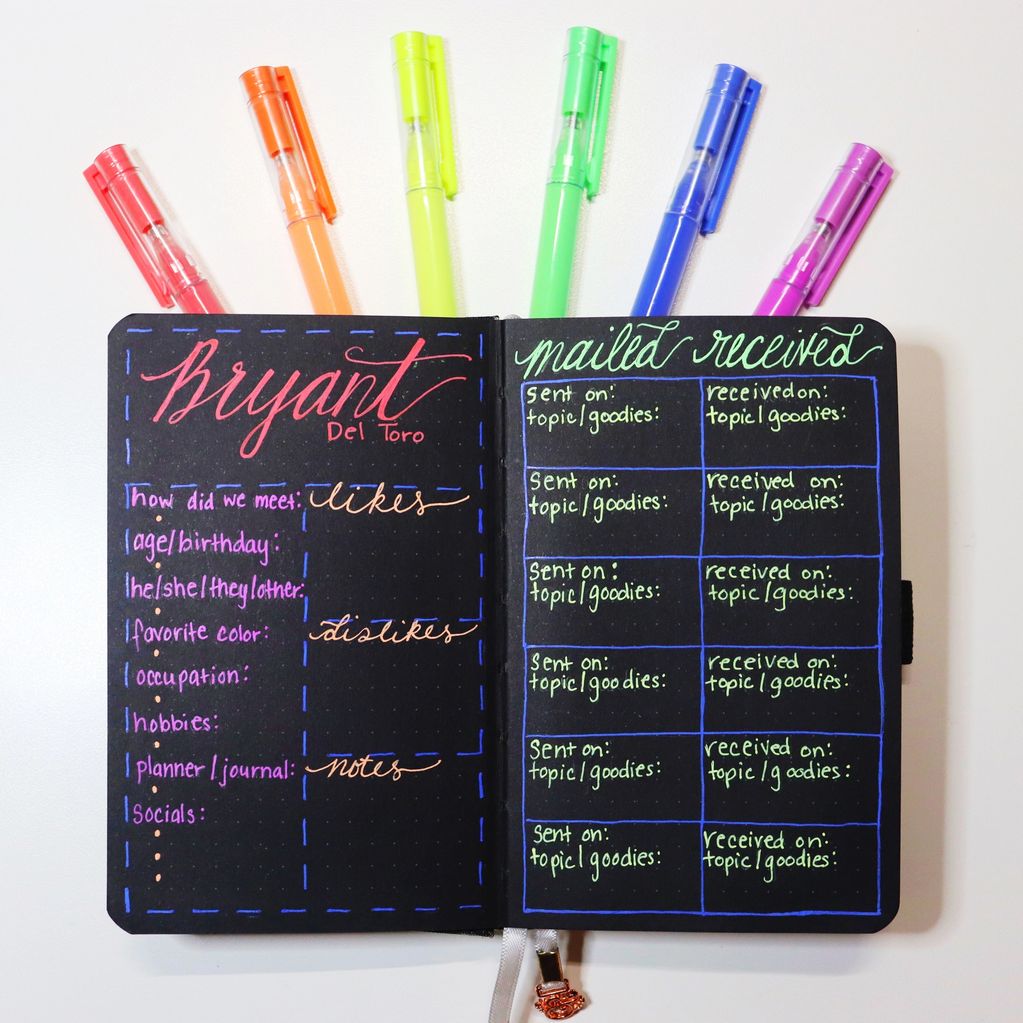 Bryant
Del Toro
how did we meet:
age/birthday:
he/she/they/other:
favorite color:
occupation:
hobbies:
planner/journal:
Socials:
likes
dislikes
notes
mailed received
Sent on:
topic/goodies:
received on:
topic/goodies:
Sent on:
topic/goodies:
received on:
topic/goodies:
Sent on:
topic/goodies:
received on:
topic/goodies:
Sent on:
topic/goodies:
received on:
topic/goodies:
Sent on:
topic/goodies:
received on:
topic/goodies:
Sent on:
topic/goodies:
received on:
topic/goodies: